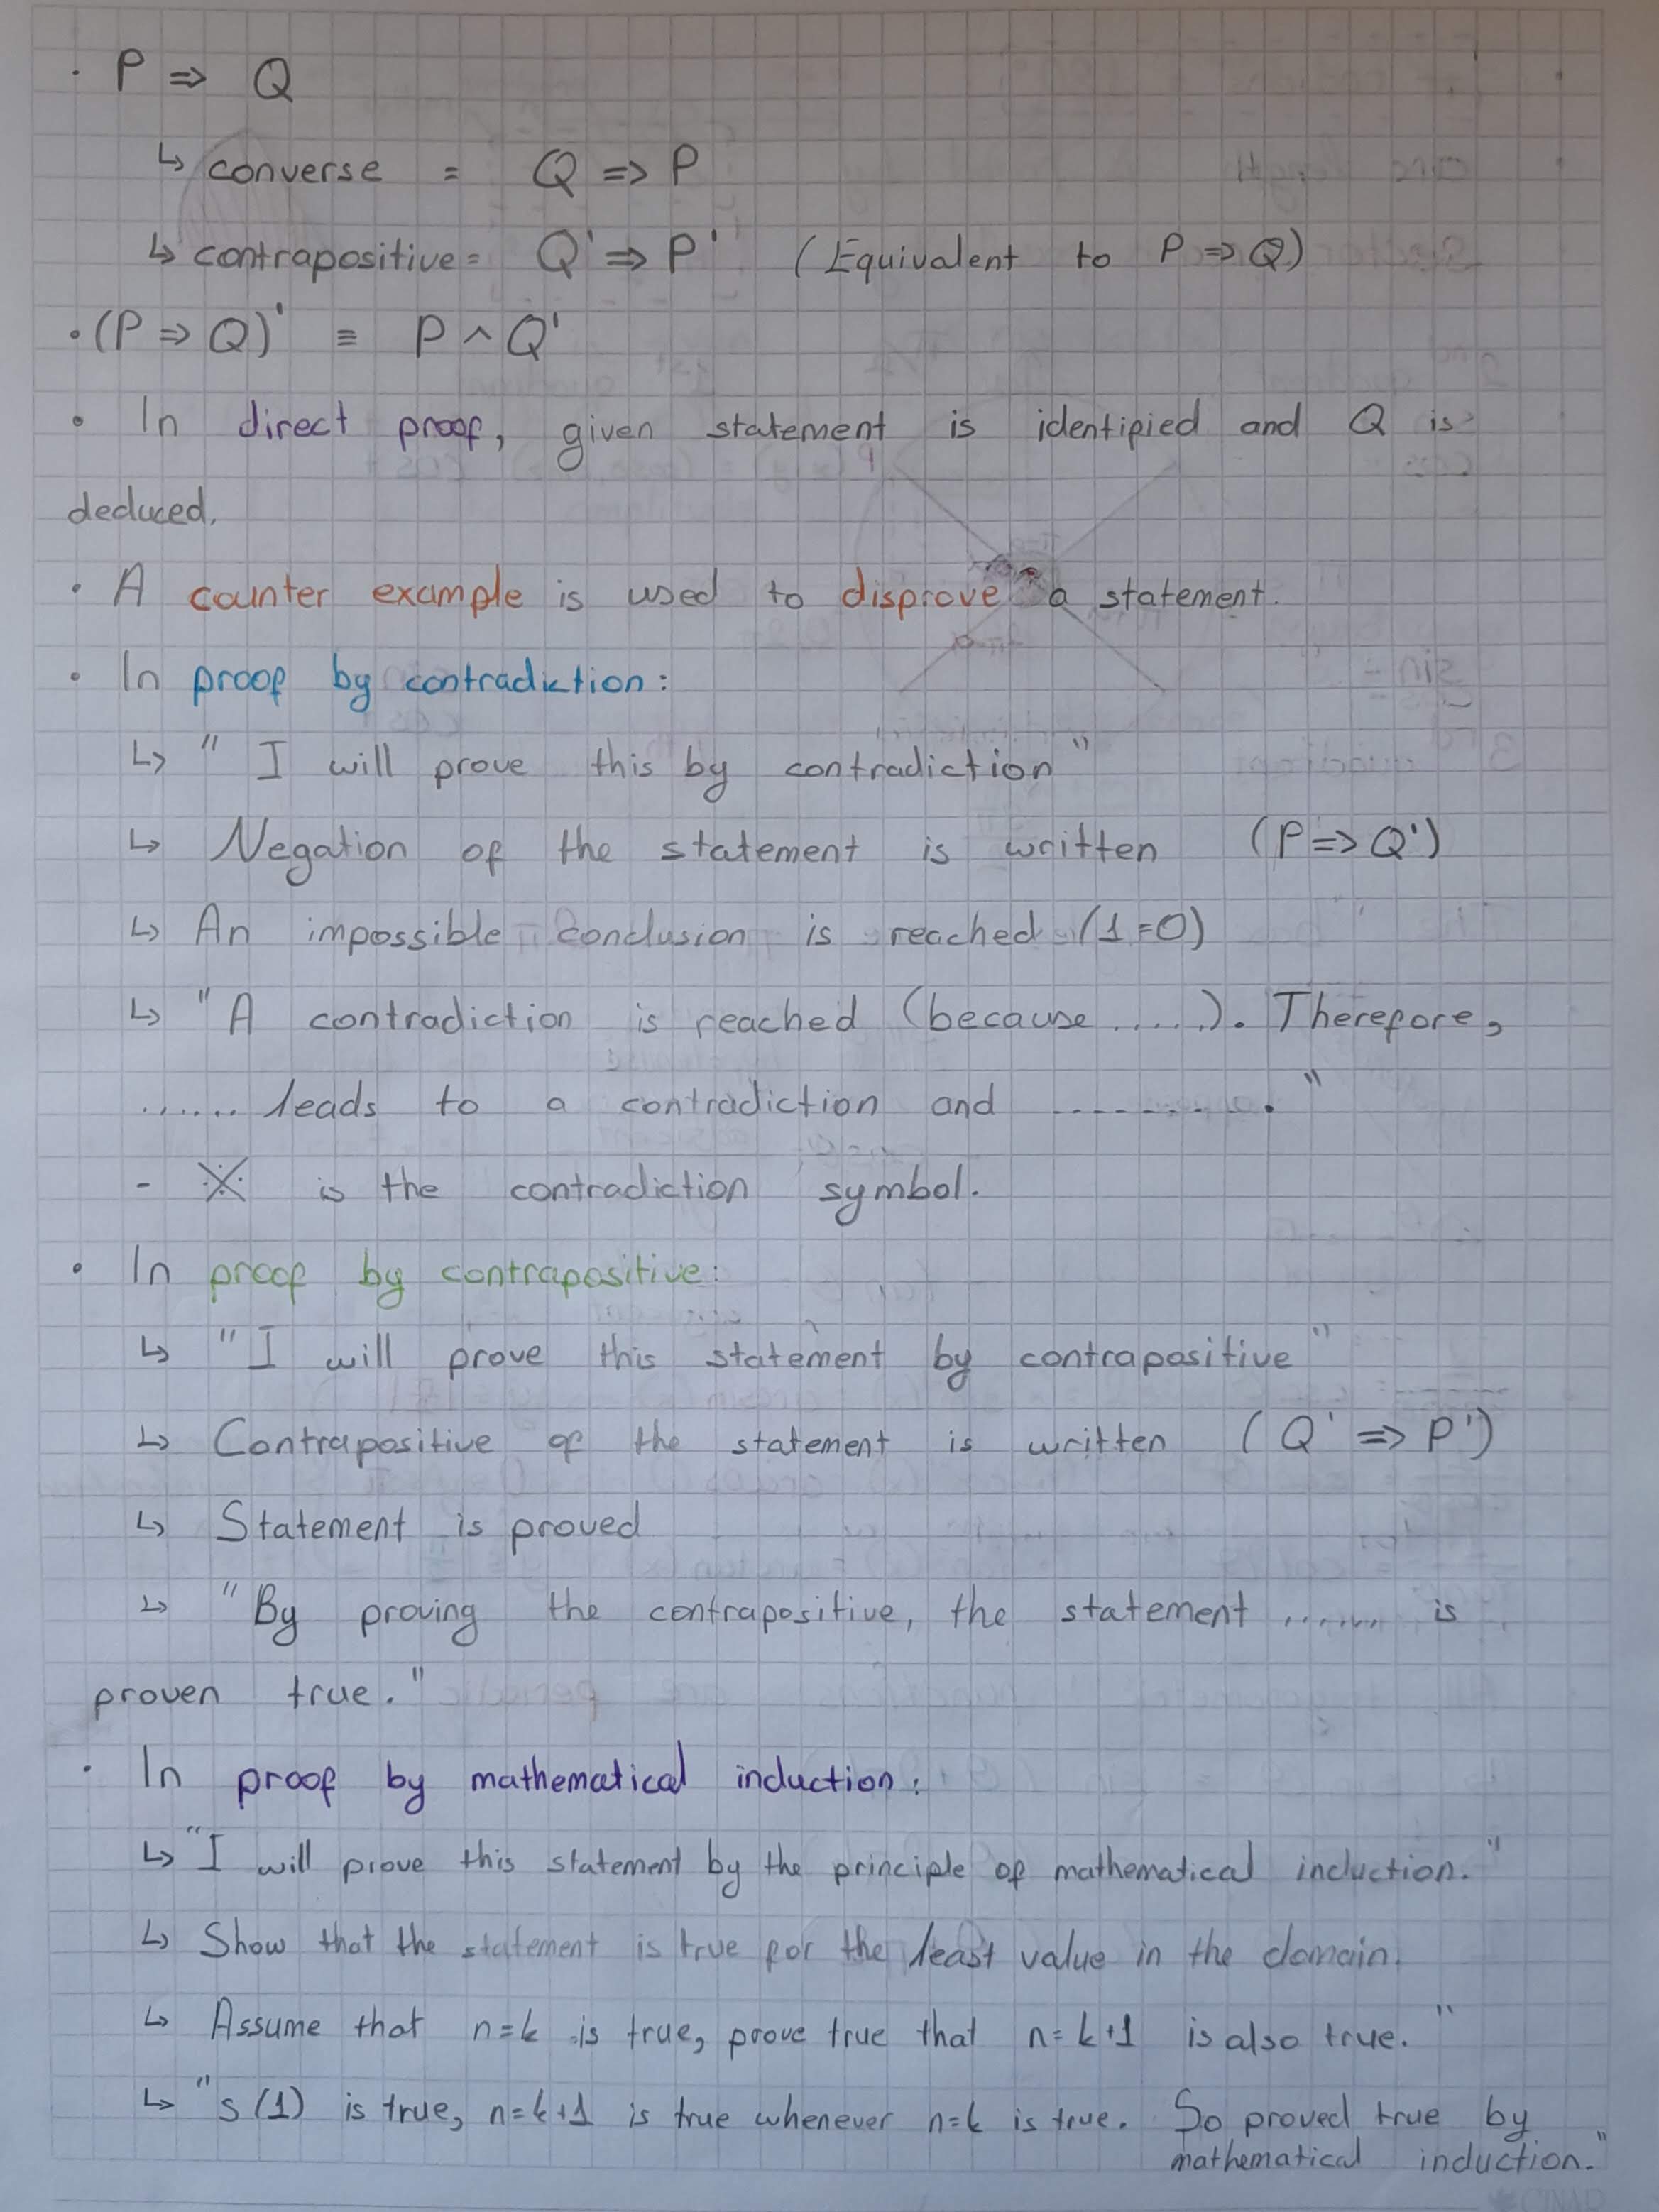 · P ⇒ Q
↳ converse = Q ⇒ P
↳ contrapositive = Q' ⇒ P' (Equivalent to P ⇒ Q)
· (P ⇒ Q)' ≡ P ∧ Q'
· In direct proof, given statement is identified and Q is
deduced.
· A counter example is used to disprove a statement.
· In proof by contradiction:
↳ " I will prove this by contradiction"
↳ Negation of the statement is written (P ⇒ Q')
↳ An impossible conclusion is reached (1=0)
↳ "A contradiction is reached (because .....). Therefore,
...... leads to a contradiction and ........."
- ※ is the contradiction symbol.
· In proof by contrapositive:
↳ "I will prove this statement by contrapositive"
↳ Contrapositive of the statement is written (Q' ⇒ P')
↳ Statement is proved
↳ "By proving the contrapositive, the statement ....... is
proven true."
· In proof by mathematical induction:
↳ "I will prove this statement by the principle of mathematical induction."
↳ Show that the statement is true for the least value in the domain.
↳ Assume that n=k is true, prove true that n=k+1 is also true."
↳ "s(1) is true, n=k+1 is true whenever n=k is true. So proved true by
mathematical induction."